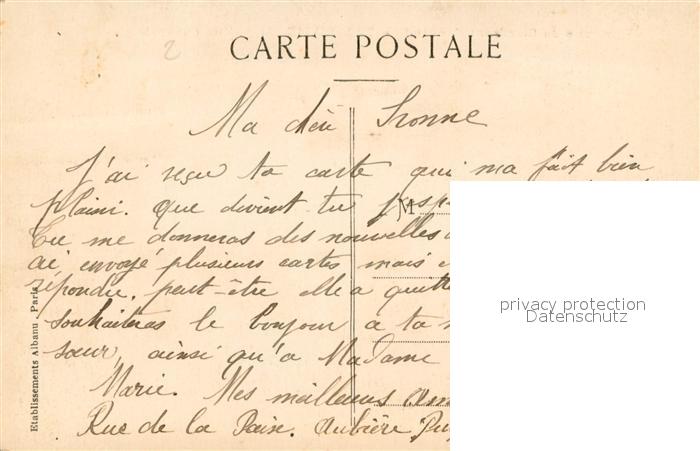 2
CARTE POSTALE
Ma chère
J'ai reçu ta carte qui ma fait bien
plaisir. que devient tu
M
Tu me donneras des nouvelles
ai envoyé plusieurs cartes mais
répondre. peut-être elle a quitté
souhaiteras le bonjour a ta
sœur, ainsi qu'a Madame
Marie. Mes meilleures
Rue de la Paix. Aubière
Etablissements Albanu. Paris
privacy protection
Datenschutz